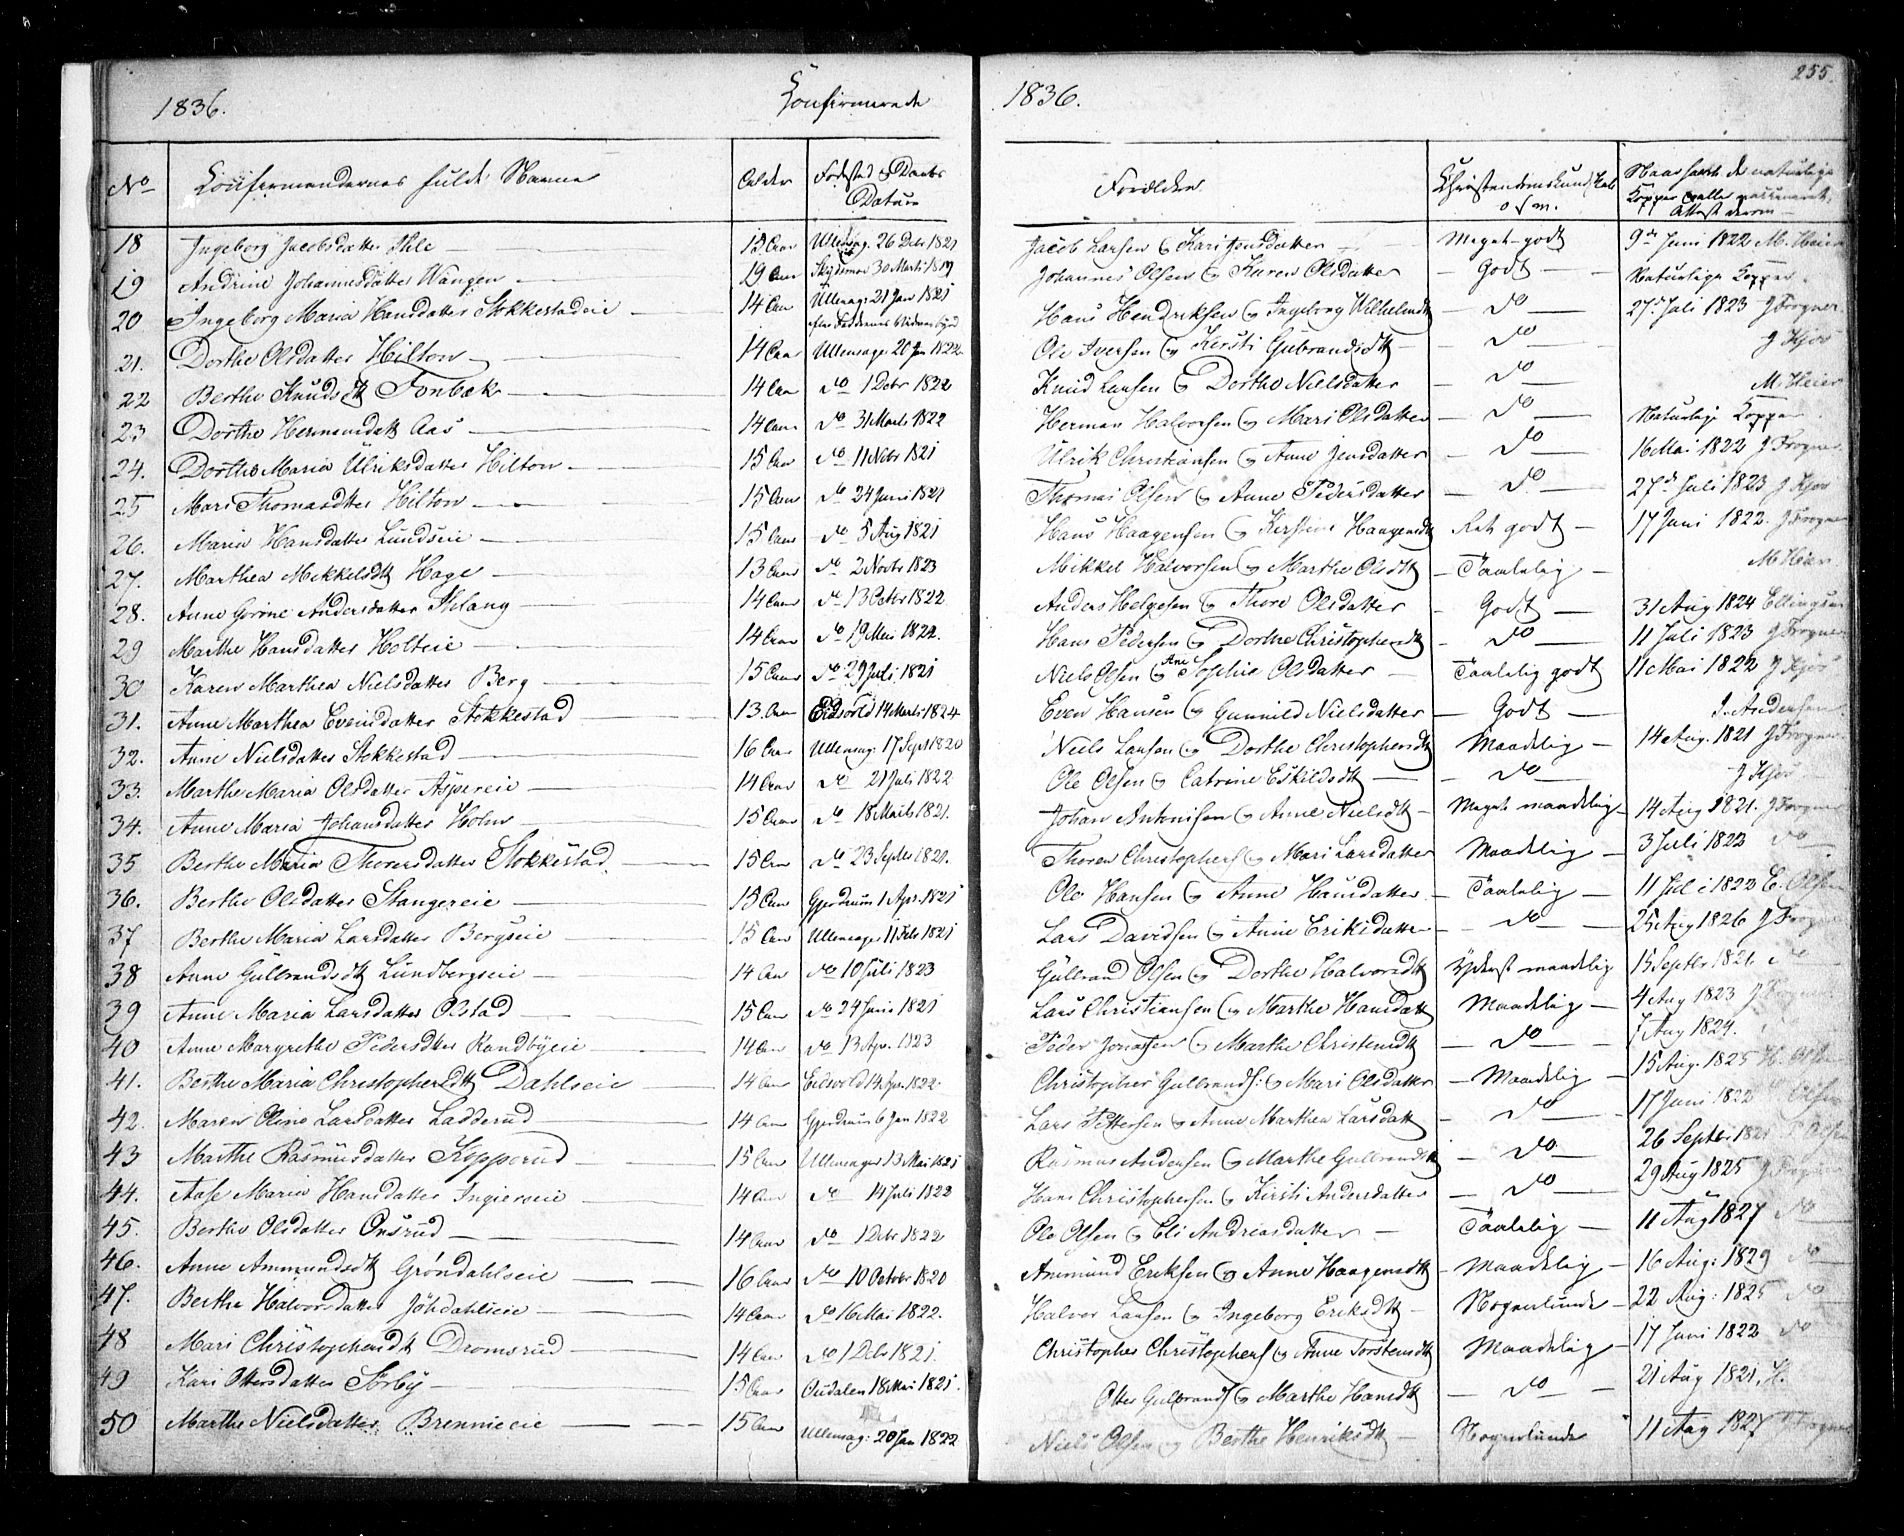 255.
1836. Confirmerede 1836.
No Confirmandernes fulde Navne Alder Fødested & Daabs Datum Forældre Christendomskundskab osv. Naar havt de naturlige Kopper eller vaccineret, Attest derom
18 Ingeborg Jacobsdatter Ihle 15 Aar Ullensag. 26 Debr 1821 Jacob Larsen & Kari Jonsdatter Meget godt 9de Juni 1822 M. Heier
19 Andrine Johannesdatter Wangen 19 Aar 30 Marti 1819 Johannes Olsen & Karen Olsdatter Godt Naturlige Kopper
20 Ingeborg Maria Hansdatter Stokkestadeie 14 Aar Ullensag: 21 Jan 1821 Hans Hendriksen & Ingeborg Wilhelmdtt do 27de Juli 1823 J Frogner
21. Dorthe Olsdatter Hilton 14 Aar Ullensager 20 Jan 1822 Ole Iversen & Kersti Gulbrandsdtt do J Kjos
22 Berthe Knudsdtt Tonbæk 14 Aar do 1 Debr 1822 Knud Larsen & Dorthe Nielsdatter do M. Heier
23 Dorthe Hermansdatt Aas 14 Aar do 31 Marts 1822 Herman Halvorsen & Mari Olsdatter do Naturlige Kopper
24. Dorthe Maria Ulriksdatter Hilton 15 Aar do 11 Nobr 1821 Ulrik Christiansen & Anne Jensdatter do 16 Mai 1822 J Frogner
25 Mari Thomasdtter Hilton 15 Aar do 24 Juni 1821 Thomas Olsen & Anne Pedersdatter do 27de Juli 1823 J Kjos
26. Maria Hansdatter Lundseie 15 Aar do 5 Aug 1821 Hans Haagensen & Kirstine Haagensdtt Ret godt 17 Juni 1822. J Frogner
27. Marthea Mikkelsdtt Hage 13 Aar do 2 Novbr 1823 Mikkel Halvorsen & Marthe Olsdtt Taalelig M Heier
28. Anne Gorine Andersdatter Skilang 14 Aar do 13 Octbr 1822 Anders Helgesen & Thore Olsdatter Godt 31 Aug 1824 Ellingsen
29 Marthe Hansdatter Holteie 14 Aar do 19 Mai 1822. Hans Pedersen & Dorthe Christophersdtt do 11 Juli 1823 J Frogner
30 Karen Marthea Nielsdatter Berg 15 Aar do 29 Juli 1821 Niels Olsen & Ane Sophie Olsdatter Taalelig godt 11 Mai 1822 J Kjos
31. Anne Marthea Evensdatter Stokkestad 13 Aar Eidsvold 14 Marti 1824 Even Hansen & Gunnild Nielsdatter Godt J. Andersen
32. Anne Nielsdatter Stokkestad 16 Aar Ullensag: 17 Sept 1820 Niels Larsen & Dorthe Christophersdtt Maadelig 14 Aug. 1821 J Frogner
33. Marthe Maria Olsdatter Aspereie 14 Aar do 21 Juli 1822 Ole Olsen & Catrine Eskildsdtt do J Kjos
34. Anne Maria Johansdatter Holm 15 Aar do 18 Marts 1821. Johan Antonisen & Anne Nielsdtt Meget maadelig 14 Aug 1821. J Frogner
35 Berthe Maria Thoresdatter Stokkestad 15 Aar do 23 Septbr 1821. Thoren Christophers & Mari Larsdatter Maadelig 3 Juli 1822 do
36. Berthe Olsdatter Stangereie 15 Aar Gjerdrum 1 Apr. 1821 Ole Hansen & Anne Hansdatter Taalelig 11 Juli 1822 C. Olsen
37 Berthe Maria Larsdatter Bergseie 15 Aar Ullensager 11 Febr 1821 Lars Davidsen & Anne Eriksdatter do 25 Aug 1826 J Frogner
38 Anne Gulbrandsdtt Lundbergseie 14 Aar do 10 Juli 1823 Gulbrand Olsen & Dorthe Halvorsdtt Yderst maadelig 15 Septbr 1821. do
39 Anne Maria Larsdatter Olstad 15 Aar do 24 Juni 1821 Lars Christiansen & Marthe Hansdatt Maadelig 4 Aug 1823 J Frogner
40 Anne Margrethe Pedersdtter Randbyeie 14 Aar do 13 Apr. 1823 Peder Jonassen & Marthe Christensdtt do 7 Aug 1824.
41. Berthe Maria Christophersdtt Dahlseie 14 Aar Eidsvold 14 Apr. 1822. Christopher Gulbrands. & Mari Olsdatter Maadelig 15 Aug. 1825 H. Olsen
42. Maren Oline Larsdatter Ladderud 14 Aar Gjerdrum 6 Jan 1822 Lars Pettersen & Anne Marthea Larsdatt do 17 Juni 1822 Olsen
43 Marthe Rasmusdatter Kopperud 15 Aar Ullensager 13 Mai 1821 Rasmus Andersen & Marthe Gulbrandsdtt do 26 Septbr 1821 Olsen
44. Aase Maria Hansdatter Ingiereie 14 Aar do 14 Juli 1822 Hans Christophersen & Kirsti Andersdatter do 29 Aug 1825 J Frogner
45. Berthe Olsdatter Onsrud 14 Aar do 1 Debr 1822 Ole Olsen & Eli Andreasdatter Taalelig 11 Aug 1827 do
46. Anne Ammundsdtt Grøndahlseie 16 Aar do 10 Octobr 1820 Ammund Eriksen & Anne Haagensdtt Maadelig 16 Aug: 1829 do
47. Berthe Halvorsdatter Jøhdahlseie 14 Aar do 16 Mai 1822. Halvor Larsen & Ingeborg Eriksdtt Nogenlunde 22 Aug: 1825 do
48 Mari Christophersdt Dromsrud 14 Aar do 1 Debr 1821. Christopher Christophers & Anne Torstensdtt Maadelig 17 Juni 1822 do
49 Kari Ottersdatter Sørby 15 Aar Oudalen 18 Mai 1821. Otter Gulbrands & Marthe Hansdtt do 21 Aug 1821, H.
50 Marthe Nielsdatter Brennieeie 15 Aar Ullensag: 20 Jan 1822 Niels Olsen og Berthe Henriksdtt Nogenlunde 11 Aug 1827 Frogner